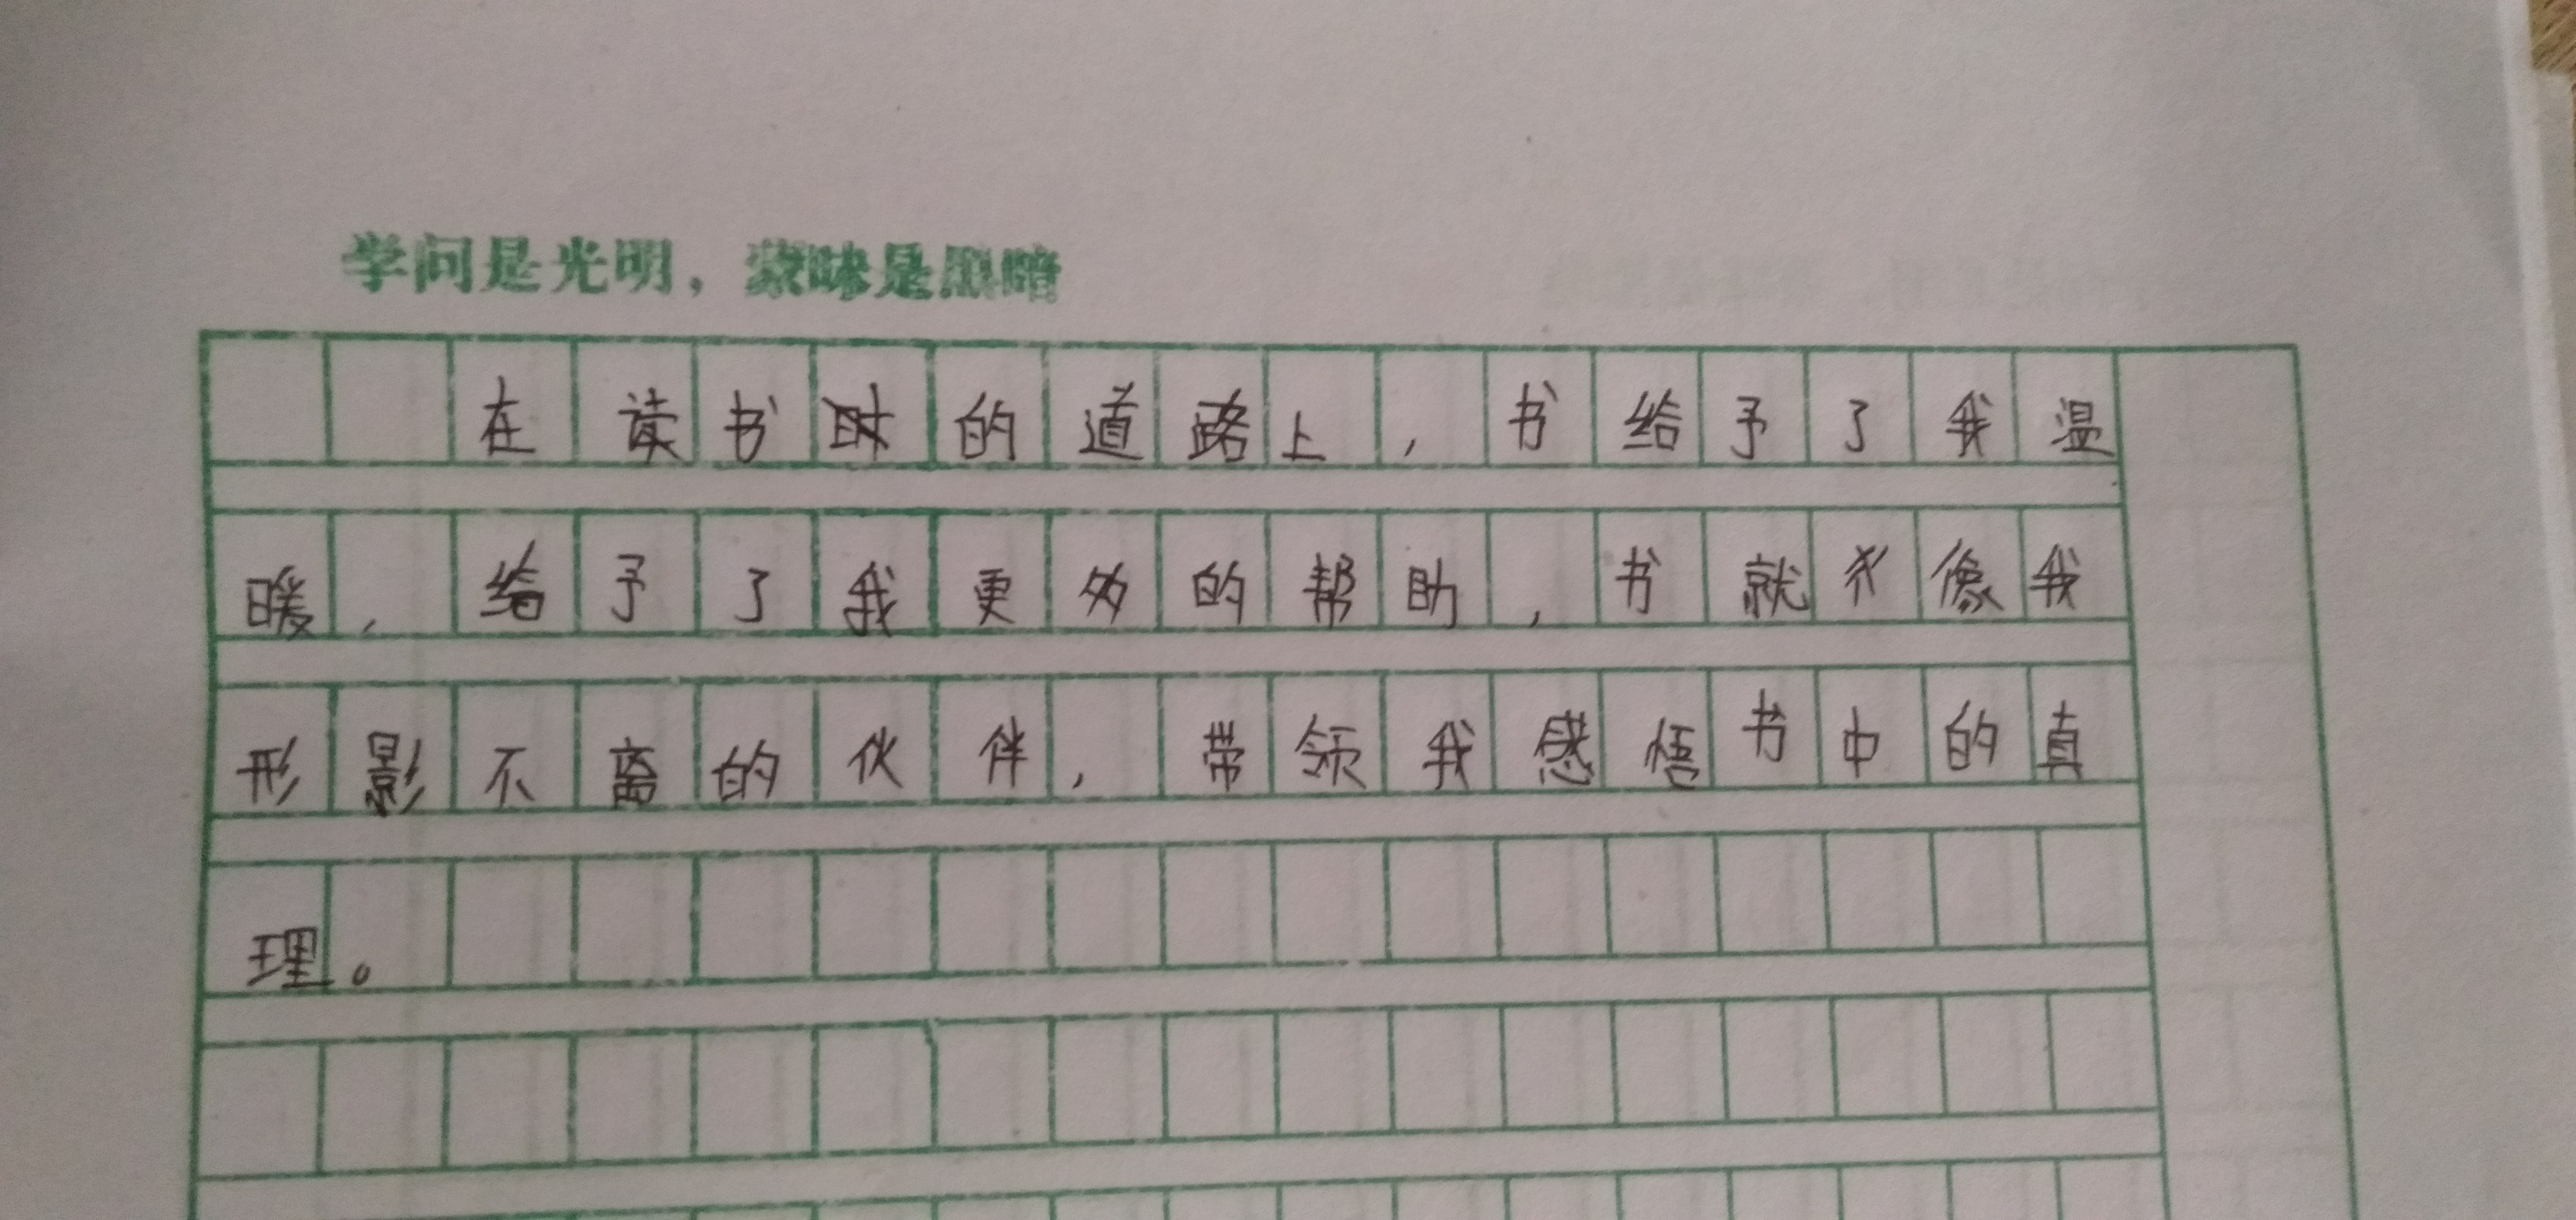 学问是光明，蒙昧是黑暗
在读书时的道路上，书给予了我温
暖，给予了我更多的帮助，书就像我
形影不离的伙伴，带领我感悟书中的真
理。